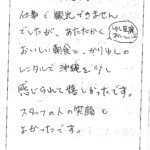 仕事で観光できません
でしたが、あたたかく
おいしい朝食と、かりゆしの
レンタルで沖縄を少し
感じられて嬉しかったです。
スタッフの人の笑顔も
よかったです。